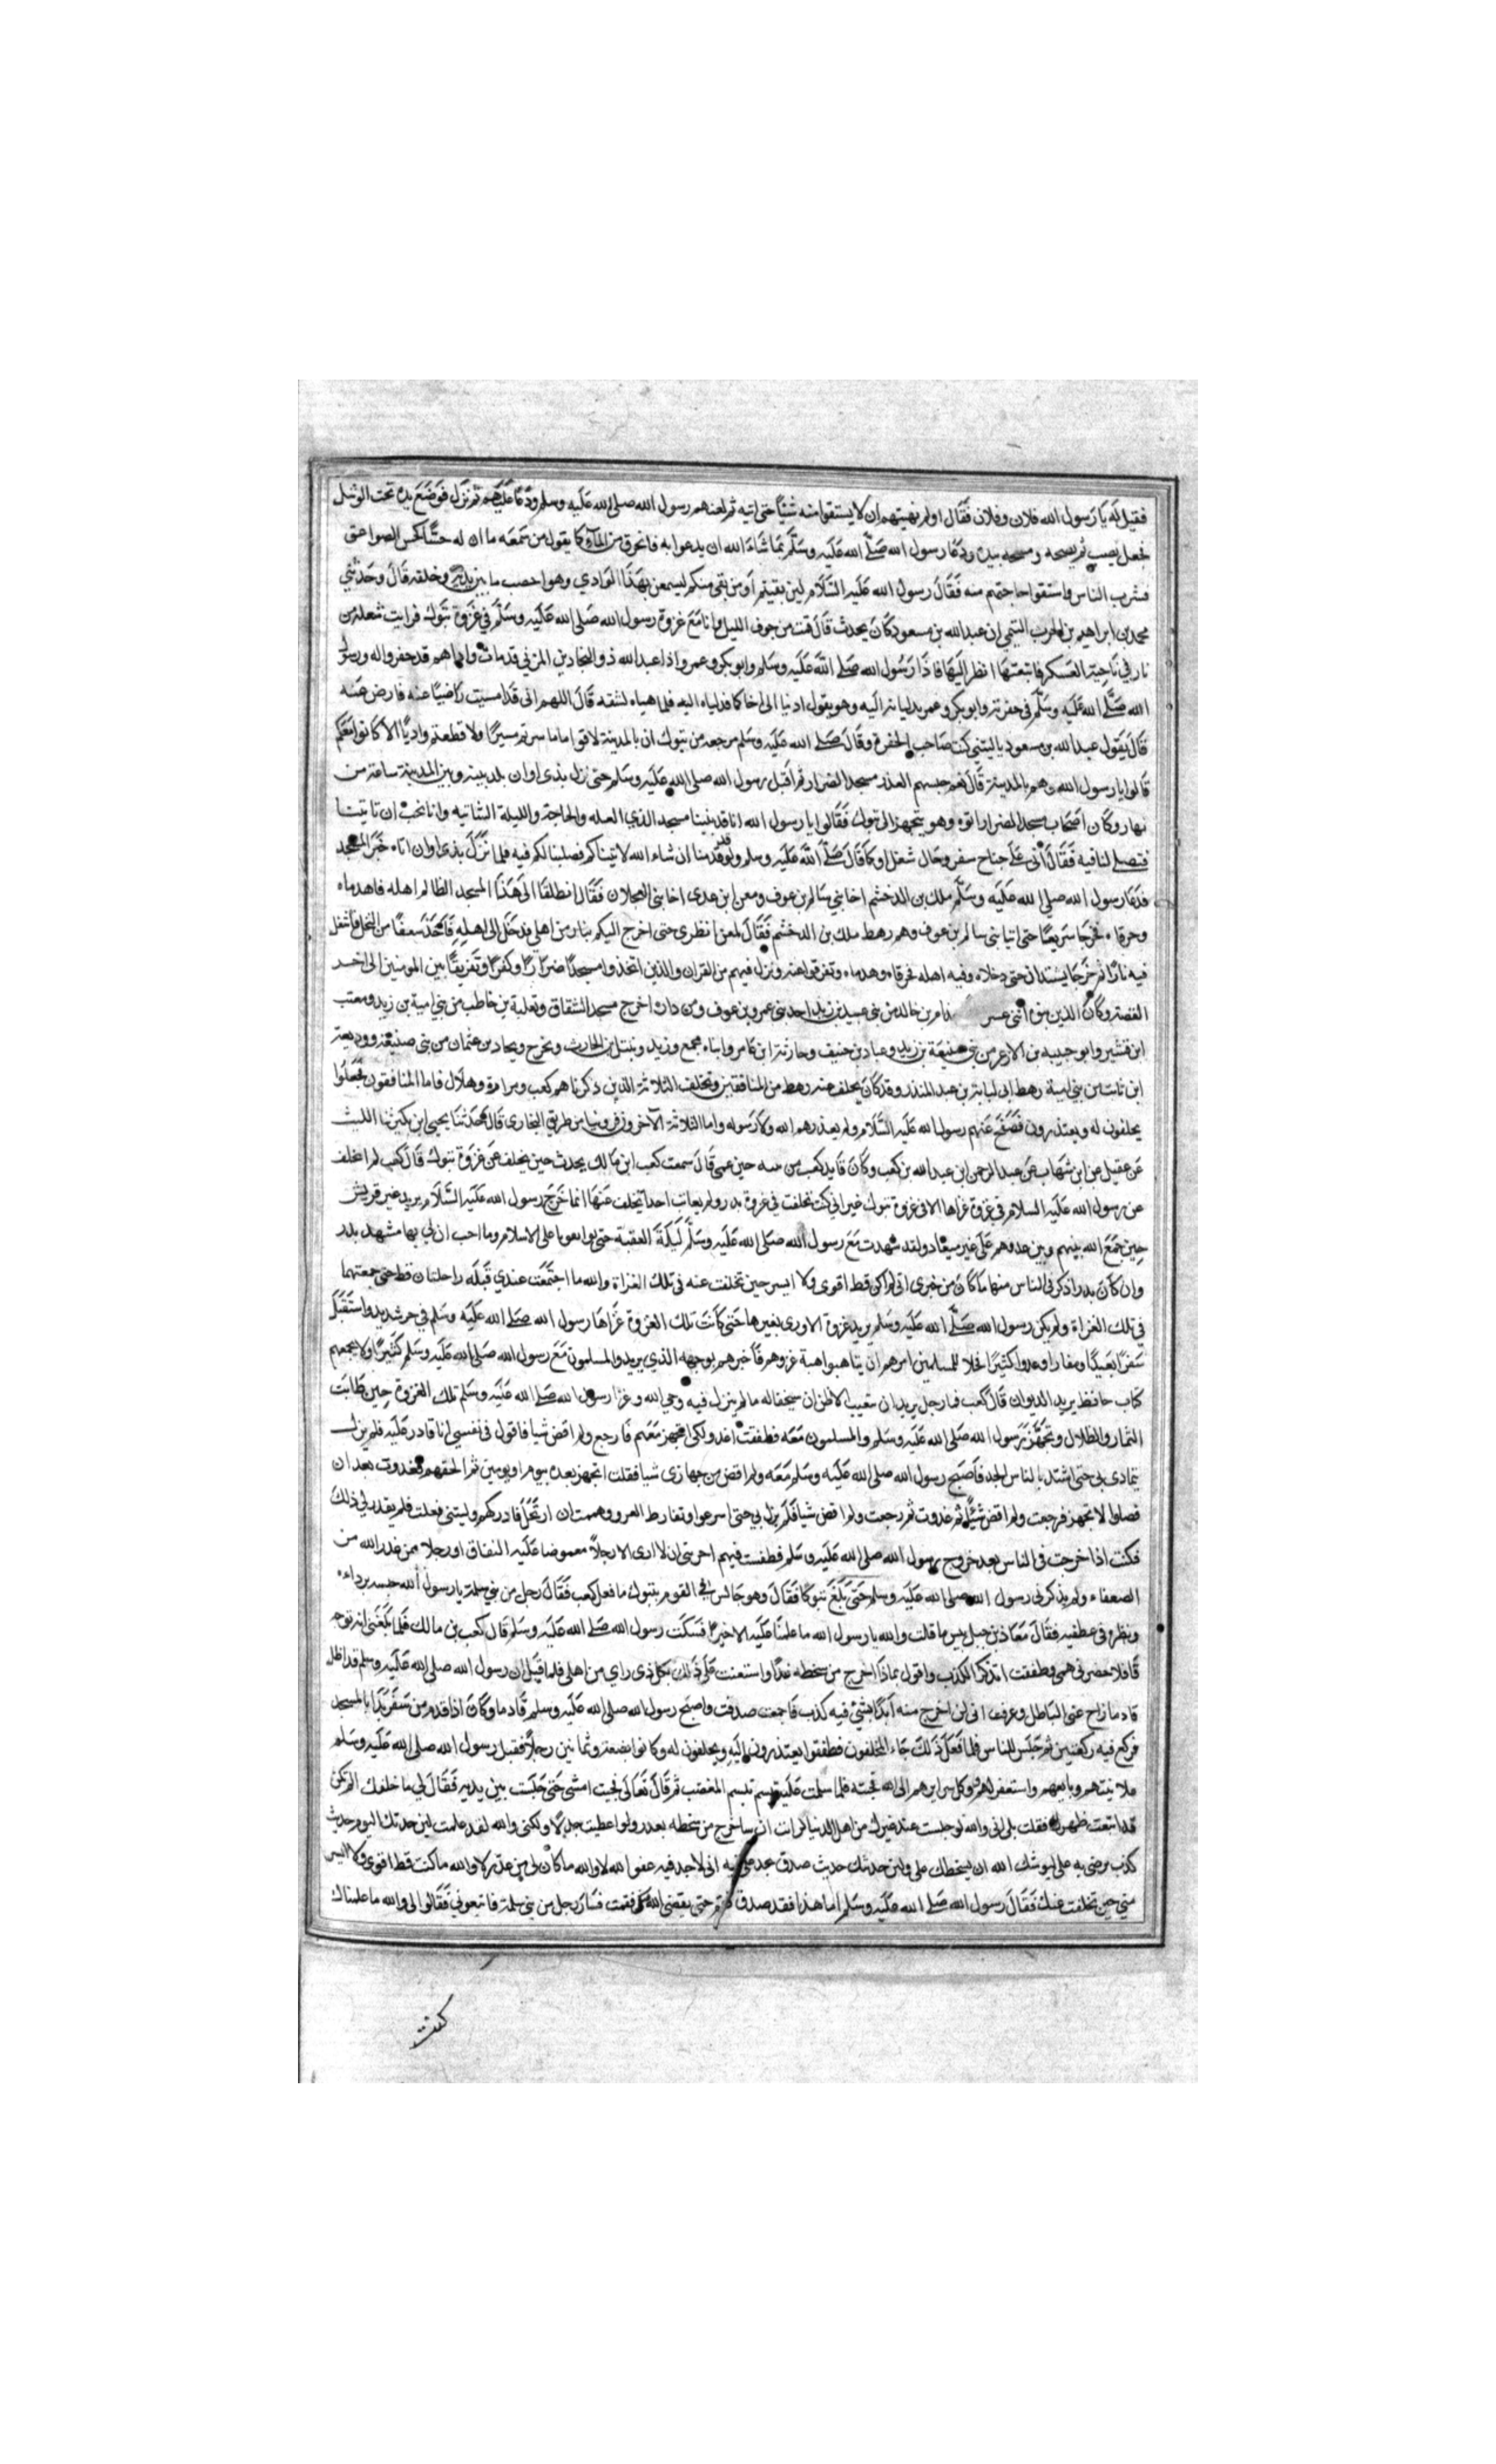 فقيل له يا رسول الله فلان وفلان فقال اولم نهيتهم ان لا يستقوا منه شيئا حتى اتيه ثم لعنهم رسول الله صلى الله عليه وسلم ودعا عليهم ثم نزل فوضع يده تحت الوشل
فجعل يصب ثم نضحه ومسحه بيده ودعا رسول الله صلى الله عليه وسلم بما شاء الله ان يدعوا به فانخرق من الماء كما يقول من سمعه ما ان له حسًّا كحس الصواعق
فشرب الناس واستقوا حاجتهم منه فقال رسول الله عليه السلام لين بقيتم او من بقي منكم ليسمعن بهذا الوادي وهو اخصب ما بين يديه وخلفه قال وحدثني
محمد بن ابراهيم بن الحرب التيمي ان عبد الله بن مسعود كان يحدث قال قمت من جوف الليل وانا مع غزوة رسول الله صلى الله عليه وسلم في غزوة تبوك فرايت شعلة من
نار في ناحية العسكر فاتبعتها انظر اليها فاذا رسول الله صلى الله عليه وسلم وابو بكر وعمر واذا عبد الله ذو البجادين المزني قد مات واذا هم قد حفروا له ورسول
الله صلى الله عليه وسلم في حفرته وابو بكر وعمر يدليانه اليه وهو يقول ادنيا الى اخاكما فدلياه اليه فلما هياه لشقه قال اللهم اني قد امسيت راضيًا عنه فارض عنه
قال يقول عبد الله بن مسعود يا ليتني كنت صاحب الحفرة وقال صلى الله عليه وسلم مرجعه من تبوك ان بالمدينة لاقواما ما سرتم مسيرًا ولا قطعتم واديًا الا كانوا معكم
قالوا يا رسول الله وهم بالمدينة قال نعم حبسهم العذر مسجد الضرار ثم اقبل رسول الله صلى الله عليه وسلم حتى نزل بذي اوان بلد بينه وبين المدينة ساعة من
نهار وكان اصحاب مسجد الضرار اتوه وهو يتجهز الى تبوك فقالوا يا رسول الله انا قد بنينا مسجد الذي العله والحاجة والليلة الشاتيه وانا نحب ان تاتينا
فتصلى لنا فيه فقال اني على جناح سفر وحال شغل او كما قال صلى الله عليه وسلم ولو قد قدمنا ان شاء الله لاتيناكم فصلينا لكم فيه فلما نزل بذي اوان اتاه خبر المسجد
فدعا رسول الله صلى الله عليه وسلم ملك بن الدخشم اخا بني سالم بن عوف ومعن ابن عدى اخا بني العجلان فقال انطلقا الى هذا المسجد الظالم اهله فاهدماه
وحرقاه فخرجا سريعًا حتى اتيا بني سالم بن عوف وهم رهط ملك بن الدخشم فقال لمعن انظرى حتى اخرج اليكم بنار من اهلي فدخل الى اهله فاخذ سعفًا من النخل فاشعل
فيه نارًا ثم خرجا يشتدان حتى دخلاه وفيه اهله فحرقاه وهدماه وتفرقوا عنه ونزل فيهم من القران والذين اتخذوا مسجدًا ضرارًا وكفرًا وتفريقًا بين المومنين الى اخر
القصة وكان الذين بنوه اثنى عسر خذام بن خالد من بني عبيد بن زيد احد بني عمرو بن عوف ومن داره اخرج مسجد الشقاق وثعلبة بن حاطب من بني امية بن زيد ومعتب
ابن قشير وابو حبيبه بن الازعر من بني ضبيعة بن زيد وعباد بن حنيف وحارثة ابن عامر وابناه مجمع وزيد ونبتل بن الحارث وبخرج وبجاد بن عثمان من بني ضبيعة ووديعة
ابن ثابت من بني امية رهط ابي لبابة بن عبد المنذر وقد كان تخلف عنه رهط من المنافقين وتخلف الثلاثة الذين ذكرناهم كعب ومرارة وهلال فاما المنافقون فجعلوا
يحلفون له ويعتذرون فصفح عنهم رسول الله عليه السلام ولم يعذرهم الله ولا رسوله واما الثلاثة الآخرون فروينا من طريق البخارى قال حدثنا يحيى ابن بكير نا الليث
عن عقيل عن ابن شهاب عن عبد الرحمن ابن عبد الله بن كعب وكان قايد كعب من بنيه حين عمى قال سمعت كعب ابن مالك يحدث حين تخلف عن غزوة تبوك قال كعب لم اتخلف
عن رسول الله عليه السلام في غزوة غزاها الا في غزوة تبوك غير اني كنت تخلفت في غزوة بدر ولم يعاتب احدا تخلف عنها انما خرج رسول الله عليه السلام يريد عير قريش
حين جمع الله بينهم وبين عدوهم على غير ميعاد ولقد شهدت مع رسول الله صلى الله عليه وسلم ليلة العقبة حتى تواثقنا على الاسلام وما احب ان لي بها مشهد بدر
وان كان بدر اذكر في الناس منها ما كان من خبرى اني لم اكن قط اقوى ولا ايسر حين تخلفت عنه في تلك الغزاة والله ما اجتمعت عندي قبله راحلتان قط حتى جمعتهما
في تلك الغزاة ولم يكن رسول الله صلى الله عليه وسلم يريد غزوة الا ورى بغيرها حتى كانت تلك الغزوة غزاها رسول الله صلى الله عليه وسلم في حر شديد واستقبل
سفرًا بعيدًا ومفازا وعدوا كثيرًا فجلا للمسلمين امرهم ان يتاهبوا اهبة غزوهم فاخبرهم بوجهه الذي يريد والمسلمون مع رسول الله صلى الله عليه وسلم كثيرًا ولا يجمعهم
كتاب حافظ يريد الديوان قال كعب فما رجل يريد ان يتغيب الا ظن ان سيخفا له ما لم ينزل فيه وحي الله وغزا رسول الله صلى الله عليه وسلم تلك الغزوة حين طابت
الثمار والظلال وتجهز رسول الله صلى الله عليه وسلم والمسلمون معه فطفقت اغدو لكي اتجهز معهم فارجع ولم اقض شيا فاقول في نفسي انا قادر عليه فلم يزل
يتمادى بي حتى اشتد بالناس الجد فاصبح رسول الله صلى الله عليه وسلم معه ولم اقض من جهازى شيا فقلت اتجهز بعده بيوم او يومين ثم الحقهم فغدوت بعد ان
فصلوا لاتجهز فرجعت ولم اقض شيئًا ثم غدوت ثم رجعت ولم اقض شيا فلم يزل بي حتى اسرعوا وتفارط الغرو وهممت ان ارتحل فادركهم وليتني فعلت فلم يقدر لي ذلك
فكنت اذا خرجت في الناس بعد خروج رسول الله صلى الله عليه وسلم فطفت فيهم احزنني ان لا ارى الا رجلاً مغموصا عليه النفاق او رجلا ممن عذر الله من
الضعفاء ولم يذكرني رسول الله صلى الله عليه وسلم حتى بلغ تبوكا فقال وهو جالس في القوم بتبوك ما فعل كعب فقال رجل من بني سلمة يا رسول الله حبسه برداه
ونظره في عطفيه فقال معاذ بن جبل بيس ما قلت والله يا رسول الله ما علمنا عليه الا خيرًا فسكت رسول الله صلى الله عليه وسلم قال كعب بن مالك فلما بلغني انه توجه
قافلا حضرني همى وطفقت اتذكر الكذب واقول بماذا اخرج من سخطه غدًا واستعنت على ذلك بكل ذي راي من اهلي فلما قيل ان رسول الله صلى الله عليه وسلم قد اظل
قادما زاح عني الباطل وعرفت اني لن اخرج منه ابدًا بشيئ فيه كذب فاجمعت صدقت واصبح رسول الله صلى الله عليه وسلم قادما وكان اذا قدم من سفر بدا بالمسجد
فركع فيه ركعتين ثم جلس للناس فلما فعل ذلك جاء المخلفون فطفقوا يعتذرون اليه ويحلفون له وكانوا بضعة وثمانين رجلاً فقبل رسول الله صلى الله عليه وسلم
علانيتهم وبايعهم واستغفر لهم ووكل سرايرهم الى الله فجئته فلما سلمت عليه تبسم تبسم المغضب ثم قال تعالى فجيت امشى حتى جلست بين يديه فقال لي ما خلفك الم تكن
قد ابتعت ظهرك فقلت بلى اني والله لو جلست عند غيرك من اهل الدنيا لرايت ان ساخرج من سخطه بعذر ولو اعطيت جدلا ولكني والله لقد علمت لين حدثتك اليوم حديث
كذب ترضى به على ليوشك الله ان يسخطك على ولين حدثتك حديث صدق تجد علي فيه اني لارجو فيه عفو الله لا والله ما كان لي من عذر لا والله ما كنت قط اقوى ولا ايسر
مني حين تخلفت عنك فقال رسول الله صلى الله عليه وسلم اما هذا فقد صدق فقم حتى يقضي الله فيك فقمت فسار رجل من بني سلمة فاتبعوني فقالوا لي والله ما علمناك
كنت